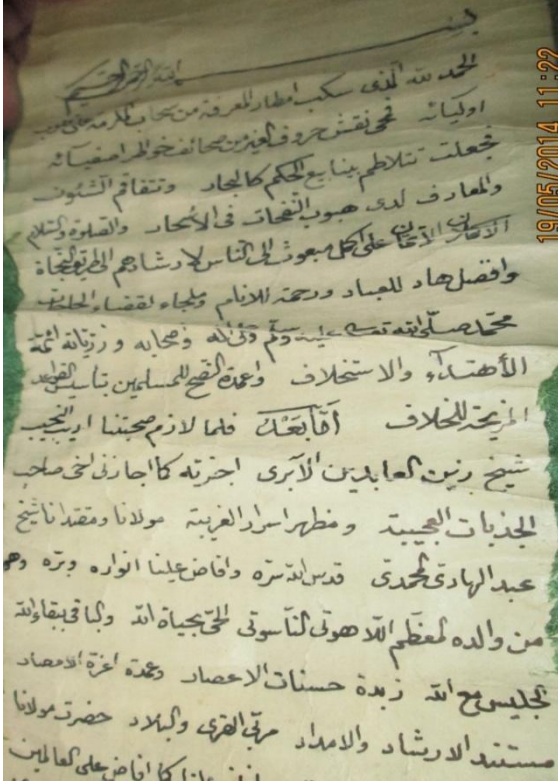 بسم
الله الرحمن الرحيم
الحمد لله الذى سكب امطار المعرفة من سحاب المكرمة على قلوب
اوليائه فمحى نقش حروف الغير من صحائف خواطر اصفيائه
فجعلت تتلاطم ينابيع الحكم كالبحار وتتفاقم الشئون
والمعارف لدى هبوب النفحات فى الأسحار والصلوة والسلام
الأتمان على اكمل مبعوث الى الناس لارشادهم الى طريق النجاة
وافضل هاد للعباد ورحمة للانام وملجاء لقضاء الحاجات
محمد صلى الله تعالى عليه وسلم وعلى اله وصحابه وذرياته ائمة
الأهتداء والاستخلاف واعمدة النصح للمسلمين بتأسيس القواعد
المزيحة للخلاف أمّا بعد فلما لازم صحبتنا اديب النجيب
شيخ زين العابدين الآبرى اجزته كما اجازنى اخى صاحب
الجذبات العجيبة ومظهر اسرار الغريبة مولانا ومقتدانا شيخ
عبد الهادى المحمدى قدس الله سره وافاض علينا انواره وبره وهو
من والده المعظم اللاهوتى الناسوتى الحى بحياة الله والباقى ببقاء الله
الجليس مع الله زبدة حسنات الاعصار وعمدة اعزة الامصار
مستند الارشاد والامداد مربى القرى والبلاد حضرت مولانا
علينا كما افاض على العالمين
19/05/2014 11:22